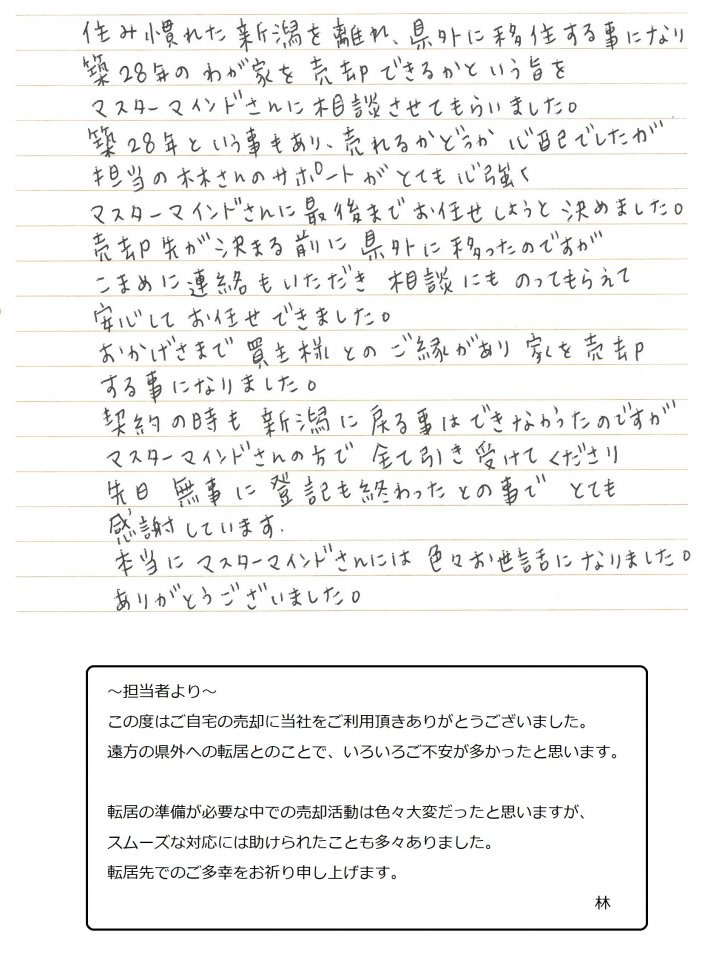 住み慣れた新潟を離れ、県外に移住する事になり
築28年のわが家を売却できるかという旨を
マスターマインドさんに相談させてもらいました。
築28年という事もあり、売れるかどうか心配でしたが
担当の林さんのサポートがとても心強く
マスターマインドさんに最後までお任せしようと決めました。
売却先が決まる前に県外に移ったのですが
こまめに連絡もいただき 相談にものってもらえて
安心してお任せできました。
おかげさまで買主様とのご縁があり家を売却
する事になりました。
契約の時も新潟に戻る事はできなかったのですが
マスターマインドさんの方で全て引き受けてくださり
先日無事に登記も終わったとの事でとても
感謝しています.
本当にマスターマインドさんには色々お世話になりました。
ありがとうございました。
～担当者より～
この度はご自宅の売却に当社をご利用頂きありがとうございました。
遠方の県外への転居とのことで、いろいろご不安が多かったと思います。
転居の準備が必要な中での売却活動は色々大変だったと思いますが、
スムーズな対応には助けられたことも多々ありました。
転居先でのご多幸をお祈り申し上げます。
林